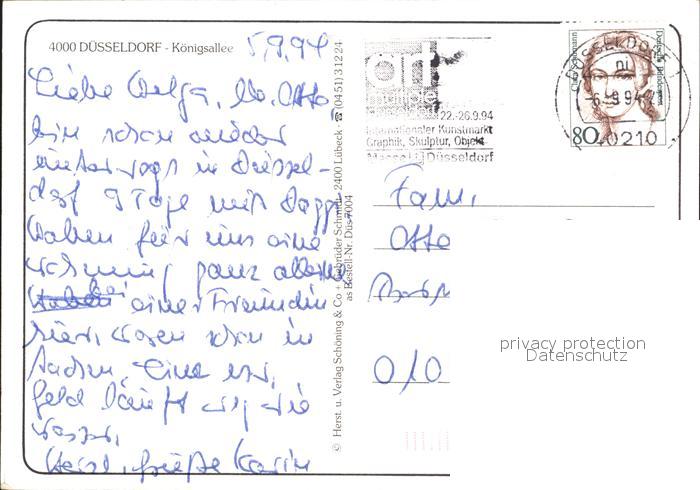 4000 DÜSSELDORF - Königsallee
5.9.94
Liebe Helga, Otto,
bin schon wieder
unterwegs in Düssel-
dorf 9 Tage mit
Haben für uns eine
Wohnung ganz allein
bei einer Freundin
hier, waren schon in
Aachen.
Geld läuft weg wie
Wasser.
Herzl. Grüße Karin
© Herst. u. Verlag Schöning & Co + Gebrüder Schmidt · 2400 Lübeck · ☎ (04 51) 3 12 24
as Bestell-Nr. Düs 7004
art
22.-26.9.94
Internationaler Kunstmarkt
Graphik, Skulptur, Objekt
Messe Düsseldorf
DÜSSELDORF 1
ni
-6.-9.94
40210
80
Deutsche Bundespost
Fam.
Otto
010
privacy protection
Datenschutz